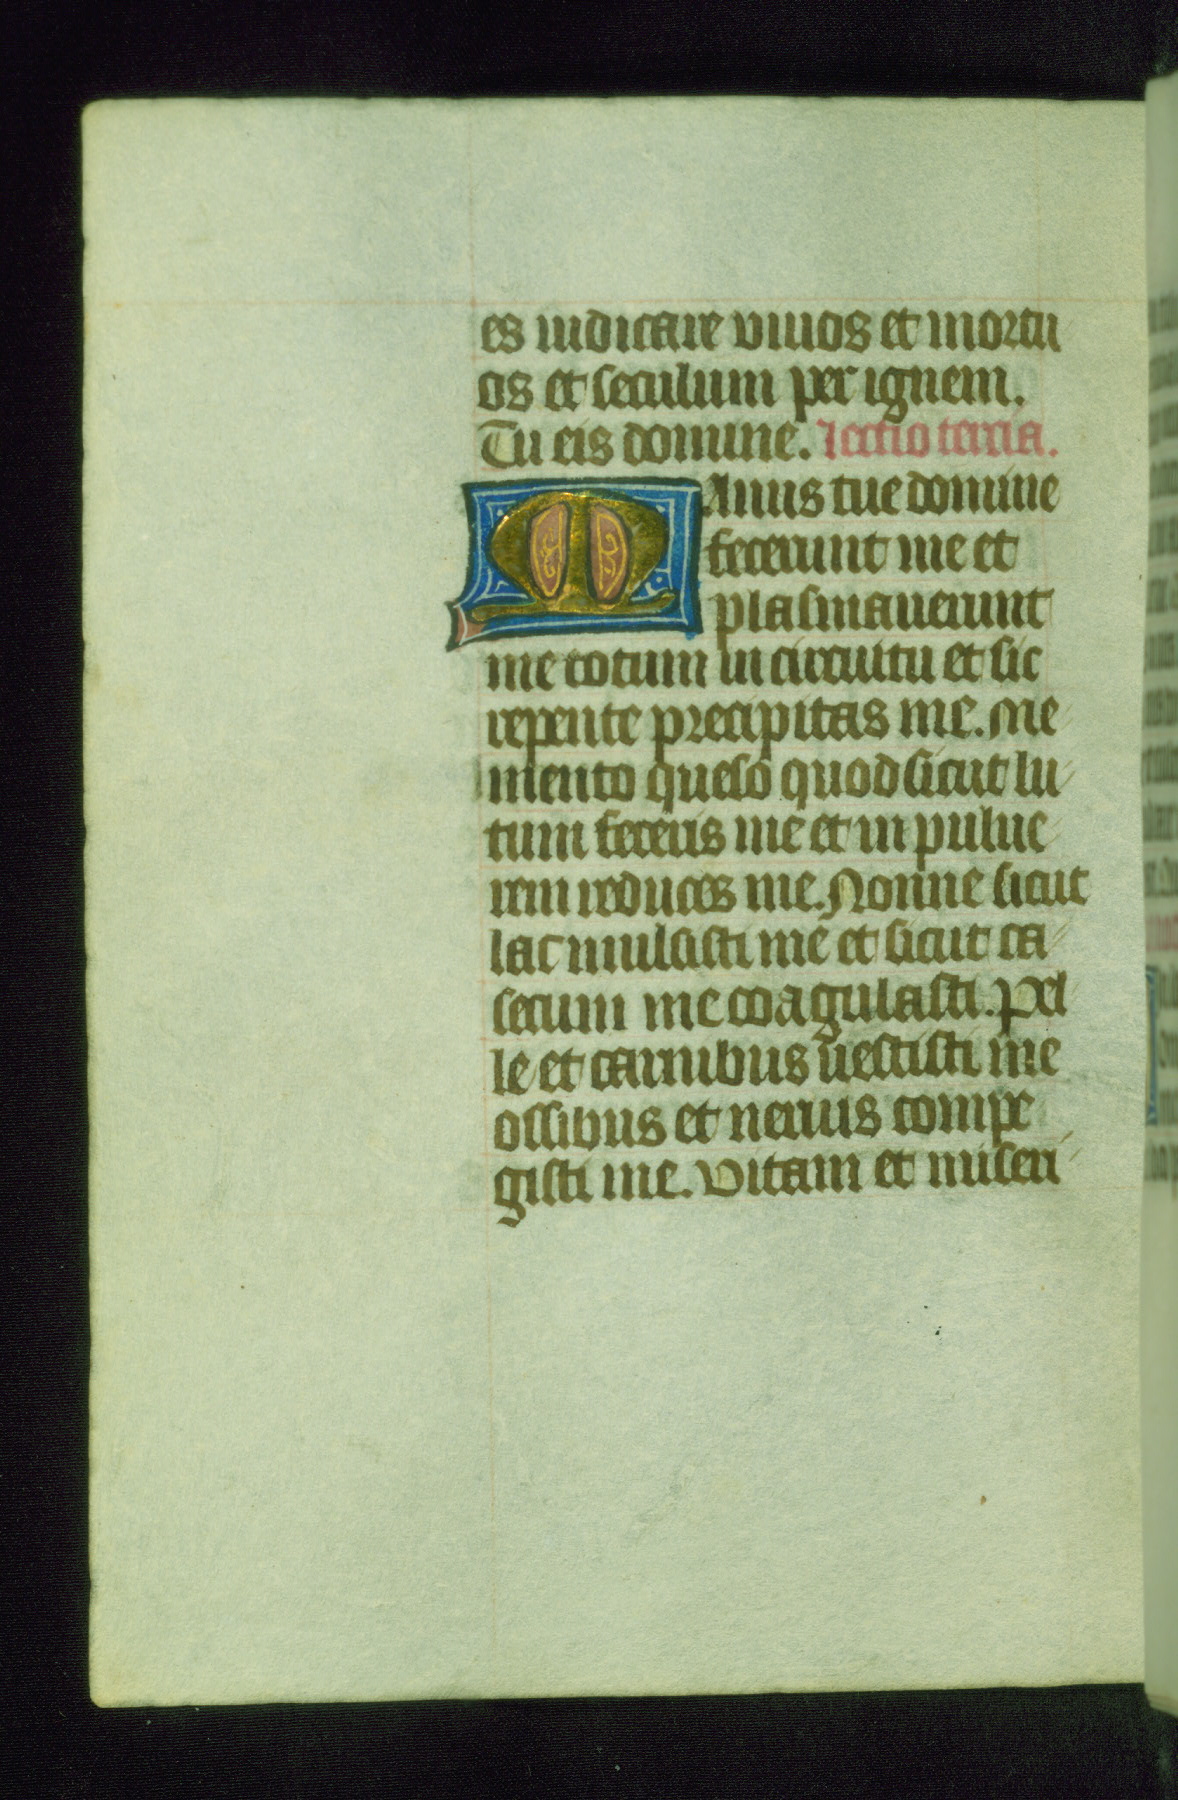 es iudicare viuos et mortu
os et seculum per ignem.
Tu eis domine. lectio tercia.
MAnus tue domine
fecerunt me et
plasmauerunt
me totum in circuitu et sic
repente precipitas me. Me
mento queso quod sicut lu
tum feceris me et in pulue
rem reduces me. Nonne sicut
lac mulsisti me et sicut ca
seum me coagulasti. Pel
le et carnibus uestisti me
ossibus et neruis compe
gisti me. Vitam et miseri